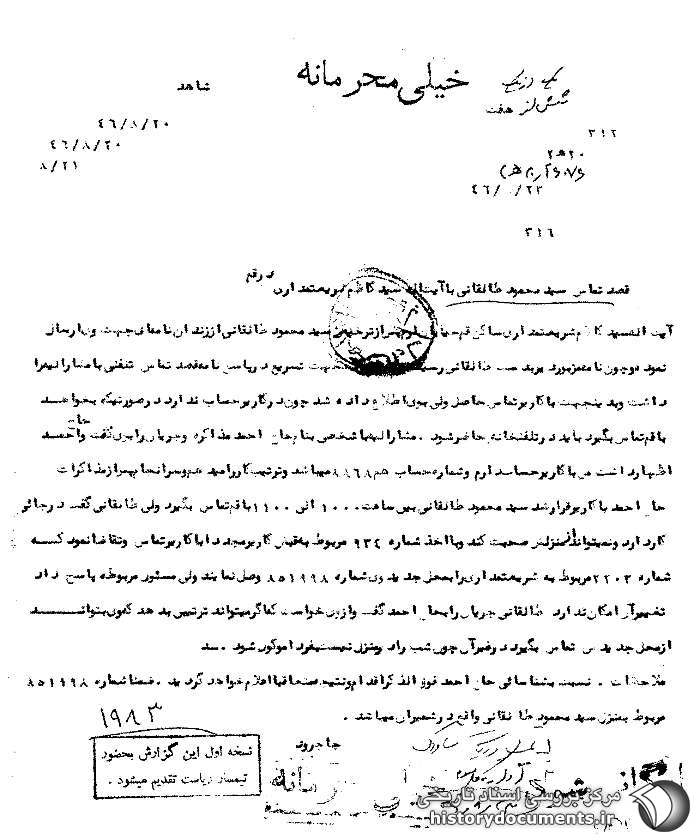 خیلی محرمانه
شاهد
٤٦/٨/٢٠
٤٦/٨/٢٠
٨/٢١
٣١٢
٢٠ ھ ٢
٣١٦
قصد تماس سید محمود طالقانی با آیت اله سید کاظم شریعتمداری در قم
آیت اله سید کاظم شریعتمداری ساکن قم پس از ترخیص سید محمود طالقانی از زندان نامه‌ای جهت وی ارسال
نمود و چون نامه مزبور بدست طالقانی رسید جهت تسریع در پاسخ نامه قصد تماس تلفنی با مشارالیه را
داشت و بدینجهت با کاریر تماس حاصل ولی بوی اطلاع داده شد چون در کاریر حساب ندارد در صورتیکه بخواهد
با قم تماس بگیرد باید در تلفنخانه حاضر شود . مشارالیه با شخصی بنام حاج احمد مذاکره و جریان را بوی گفت حاج احمد
اظهار داشت من با کاریر حساب دارم و شماره حساب هم ٨٨٦٨ میباشد و ترتیب کار را میدهم و سرانجام پس از مذاکرات
حاج احمد با کاریر قرار شد سید محمود طالقانی بین ساعت ١٠٠٠ الی ١١٠٠ با قم تماس بگیرد ولی طالقانی گفت در جائی
کار دارد و نمیتواند از منزلش صحبت کند و با اخذ شماره ٩٣٤ مربوط به فیش کاریر مجددا با کاریر تماس و تقاضا نمود که
شماره ٢٢٠٣ مربوط به شریعتمداری را بمحل جدید وی شماره ٨٥١٩٩٨ وصل نمایند ولی مسئور مربوطه پاسخ داد
تغییر آن امکان ندارد طالقانی جریان را بحاج احمد گفت و از وی خواست که اگر میتواند ترتیبی بدهد که وی بتواند
از محل جدیدش تماس بگیرد در غیر آن چون شب را در منزل نیست بفردا موکول شود . سد
ملاحظات . نسبت بشناسائی حاج احمد فوق الذکر اقدام و نتیجه متعاقبا اعلام خواهد گردید . ضمنا شماره ٨٥١٩٩٨
مربوط بمنزل سید محمود طالقانی واقع در شمیران میباشد .
١٩٨٣
جاجرود
نسخه اول این گزارش بحضور
تیمسار ریاست تقدیم میشود .
مرکز بررسی اسناد تاریخی
historydocuments.ir